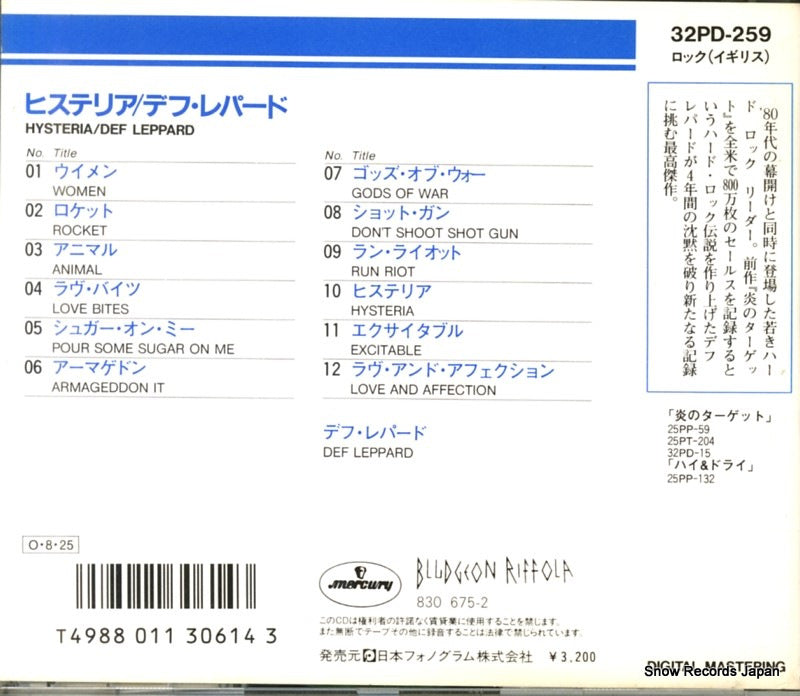 32PD-259
ロック(イギリス)
ヒステリア/デフ・レパード
HYSTERIA/DEF LEPPARD
No. Title
01 ウイメン
WOMEN
02 ロケット
ROCKET
03 アニマル
ANIMAL
04 ラヴ・バイツ
LOVE BITES
05 シュガー・オン・ミー
POUR SOME SUGAR ON ME
06 アーマゲドン
ARMAGEDDON IT
No. Title
07 ゴッズ・オブ・ウォー
GODS OF WAR
08 ショット・ガン
DON'T SHOOT SHOT GUN
09 ラン・ライオット
RUN RIOT
10 ヒステリア
HYSTERIA
11 エクサイタブル
EXCITABLE
12 ラヴ・アンド・アフェクション
LOVE AND AFFECTION
デフ・レパード
DEF LEPPARD
'80年代の幕開けと同時に登場した若きハー
ド ロック リーダー。前作『炎のターゲッ
ト』を全米で800万枚のセールスを記録すると
いうハード・ロック伝説を作り上げたデフ
レパードが4年間の沈黙を破り新たなる記録
に挑む最高傑作。
「炎のターゲット」
25PP-59
25PT-204
32PD-15
「ハイ&ドライ」
25PP-132
O・8・25
T4988 011 30614 3
mercury
BLUDGEON RIFFOLA
830 675-2
このCDは権利者の許諾なく賃貸業に使用することを禁じます。
また無断でテープその他に録音することは法律で禁じられています。
発売元 日本フォノグラム株式会社 ¥3,200
DIGITAL MASTERING
Snow Records Japan